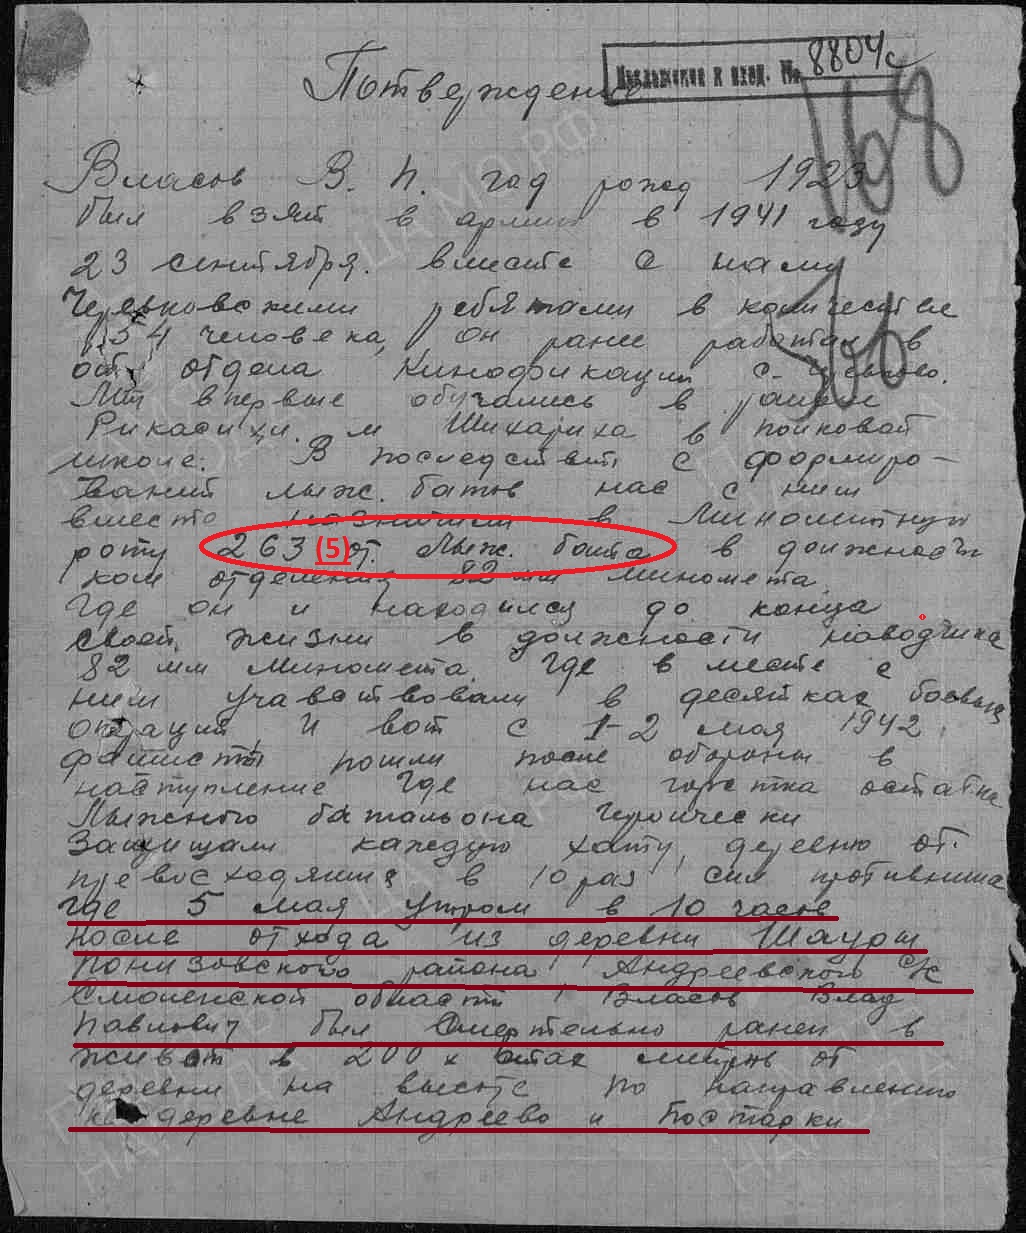 Приложение к вход. № 8804с
168
Потверждение
Власов В. П. год рожд 1923
был взят в армию в 1941 году
23 сентября. вместе с нами
Черевковскими ребятами в количестве
34 человека, он ранее работал в
отдела Кинофикации с.
Мы впервые обучались в районе
Рикасихи. и Шихариха в полковой
школе. В последствии с формиро-
ваний лыж. батов нас с ним
вместе назначили в Минометную
роту 263 (5) от. Лыж. бата в должность
ком отделения 82 мм миномета.
Где он и находился до конца
своей жизни в должности наводчика
82 мм Миномета. Где в месте с
ним учавствовали в десятках боевых
операций И вот с 1-2 мая 1942
фашисты пошли после обороны в
наступление Где нас горстка остатка
Лыжного батальона героически
Защищали каждую хату, деревню от
превосходящих в 10 раз сил противника
где 5 мая утром в 10 часов
после отхода из деревни Шауры
Понизовского района Андреевского с/с
Смоленской области Власов Влад
Павлович был Смертельно ранен в
живот в 200 х метрах от
деревни на высоте по направлению
к деревне Андреево и Постарки
ЦАМО.РФ